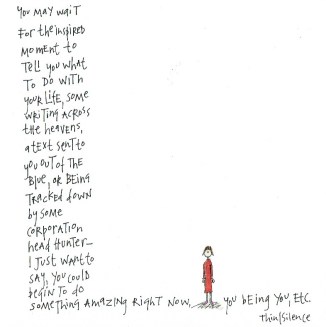 You may wait
For the inspired
moment to
Tell you what
To do with
your life, some
writing across
the heavens,
a text sent to
you out of the
Blue, or being
Tracked down
by some
corporation
head hunter—
I just want to
say, you could
begin to do
something amazing right now, you being you, etc.
Thin|Silence